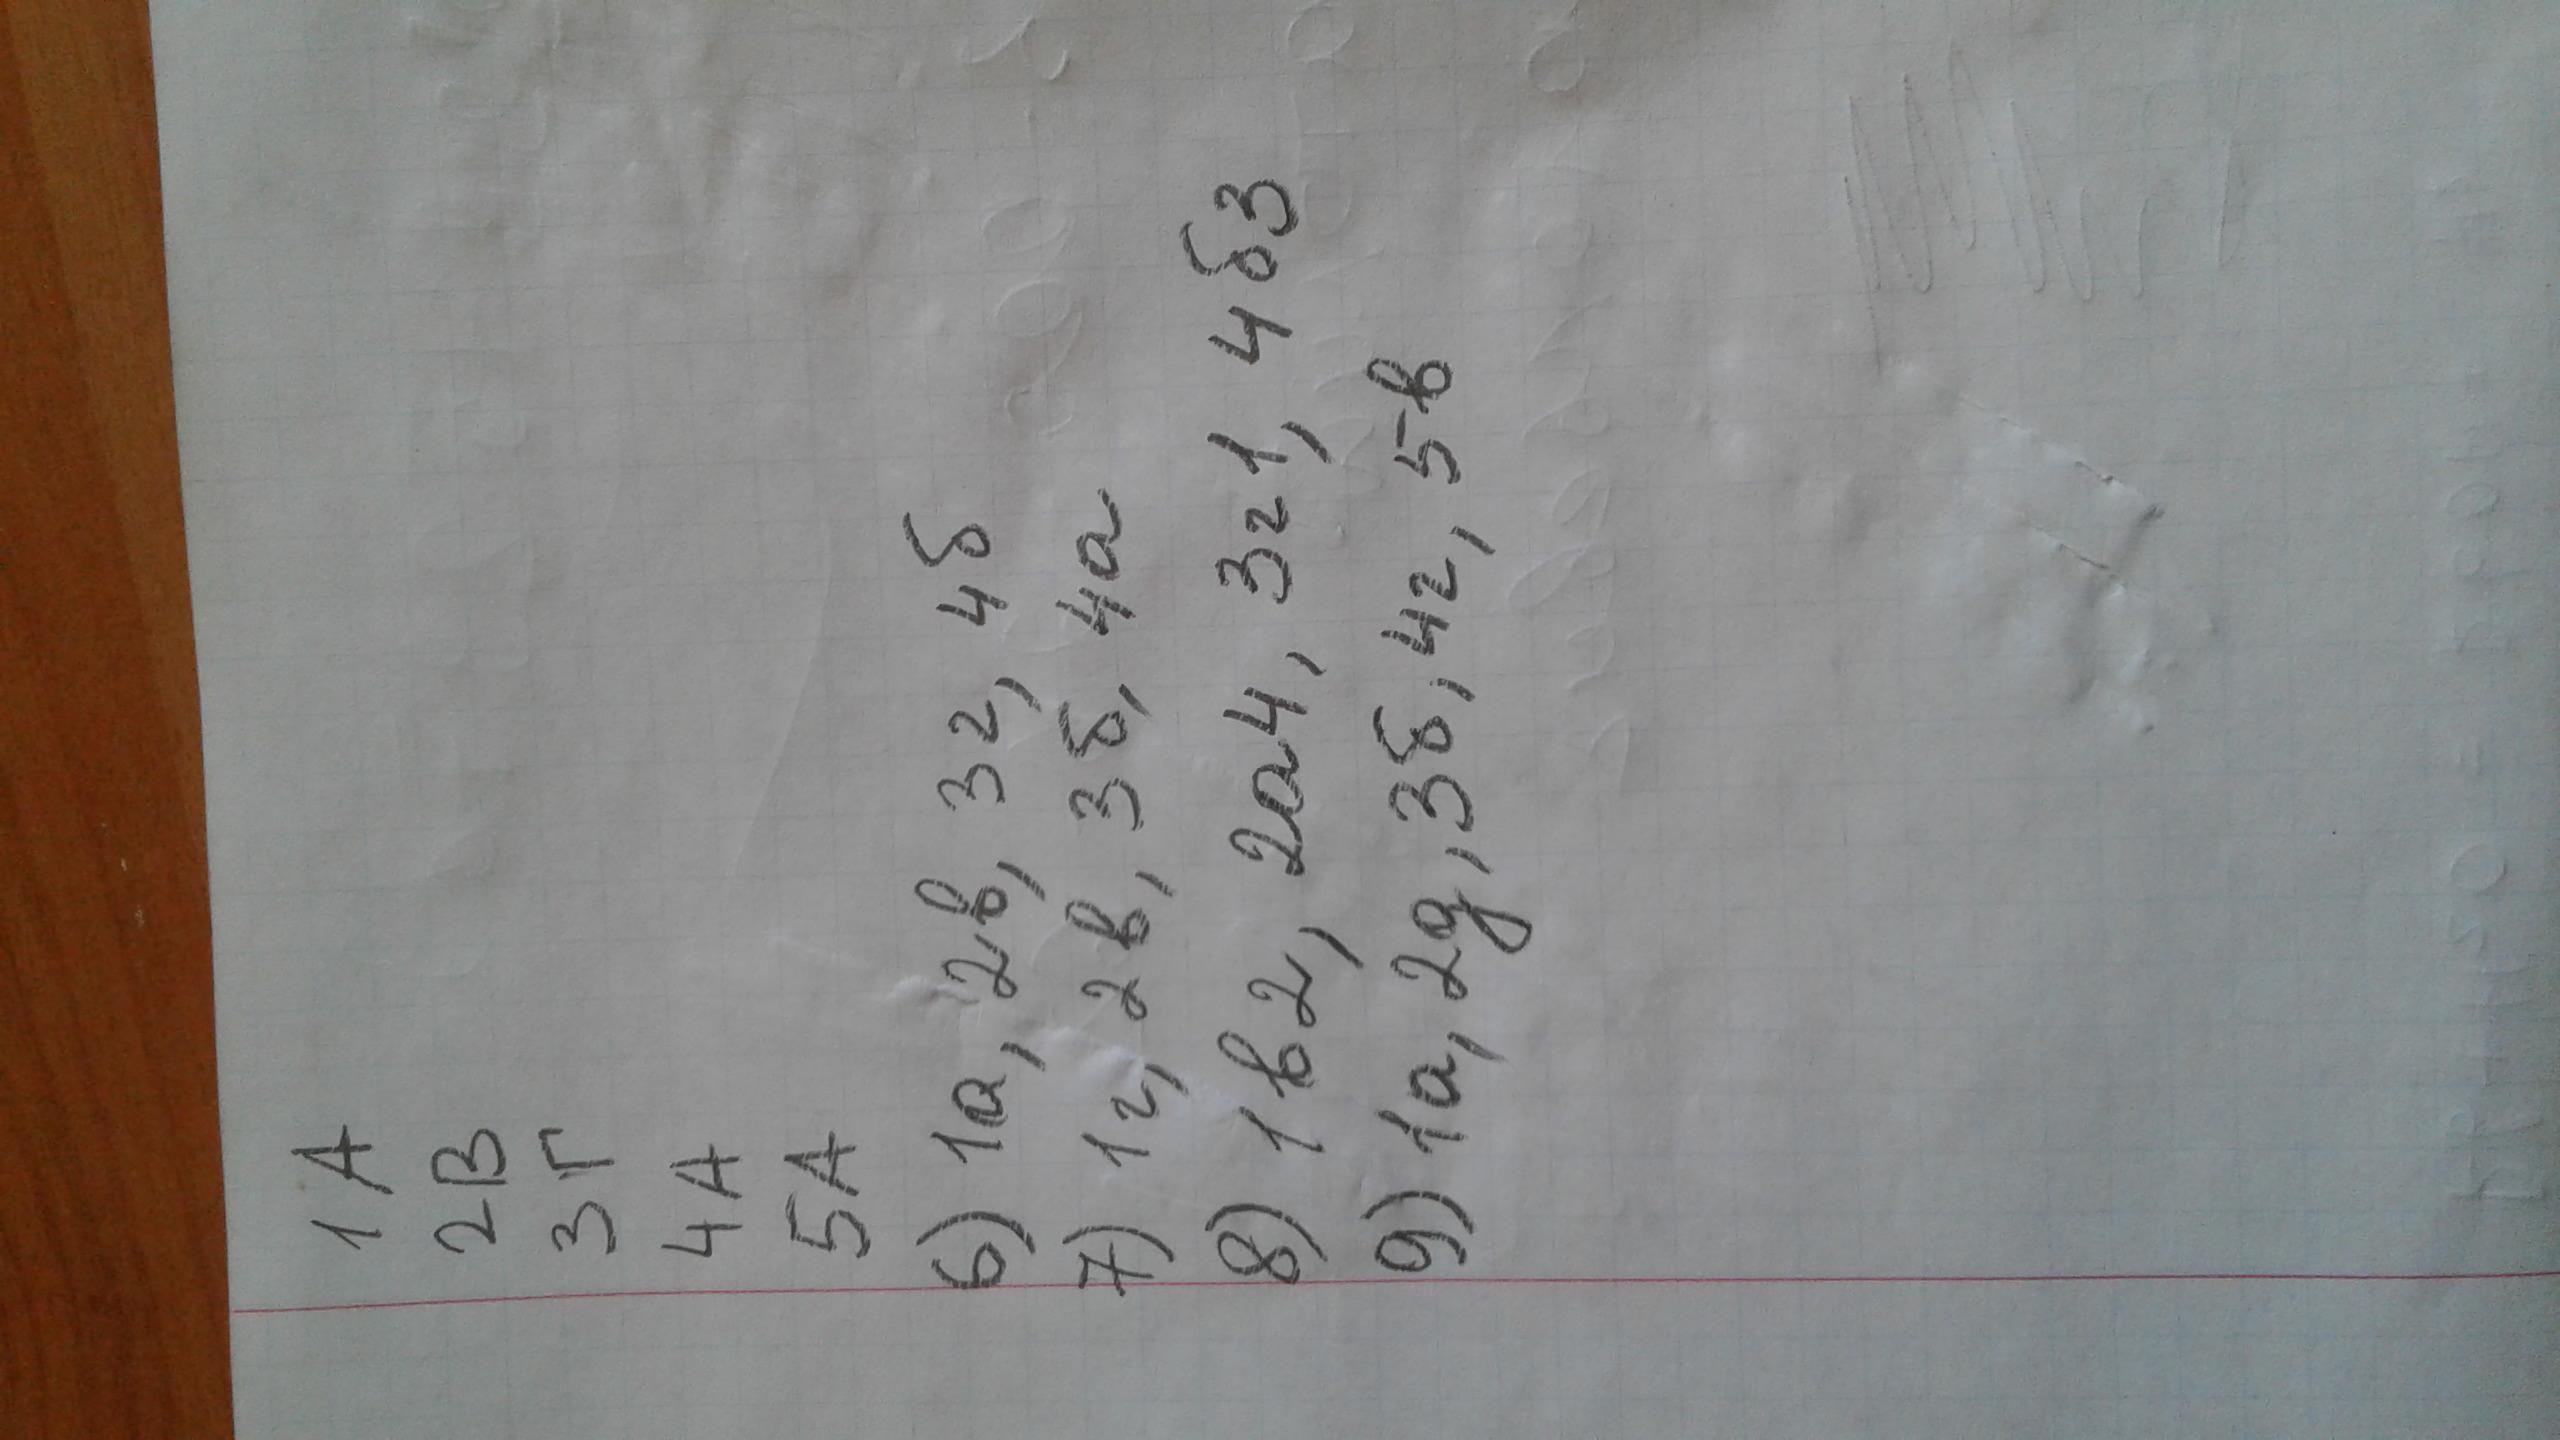 1 А
2В
3Г
4А
5А
6) 1а, 2в, 3г, 4б
7) 1г, 2в, 3б, 4а
8) 1в2, 2а4, 3г1, 4б3
9) 1а, 2д, 3б, 4г, 5в